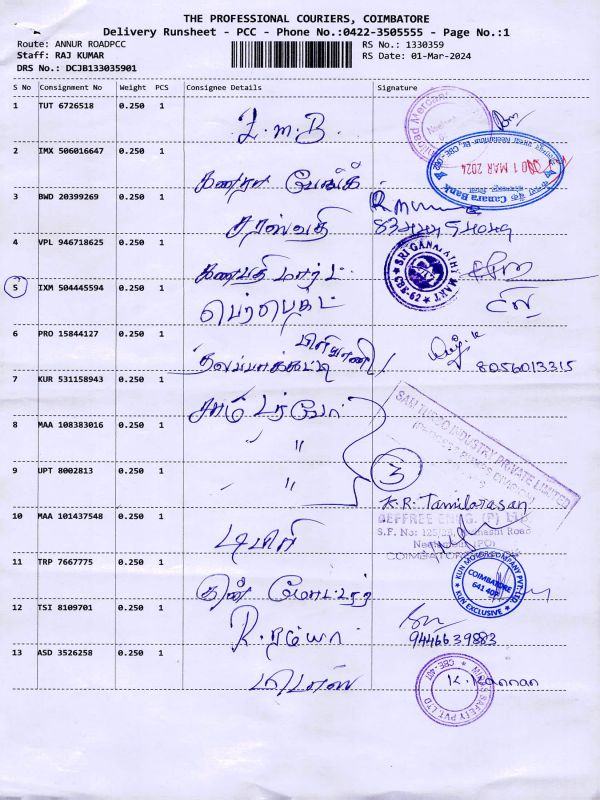 THE PROFESSIONAL COURIERS, COIMBATORE
Delivery Runsheet - PCC - Phone No.:0422-3505555 - Page No.:1
Route: ANNUR ROADPCC RS No.: 1330359
Staff: RAJ KUMAR RS Date: 01-Mar-2024
DRS No.: DCJB133035901
S No Consignment No Weight PCS Consignee Details Signature
1 TUT 6726518 0.250 1
L.M.B.
2 IMX 506016647 0.250 1
Canara Bank
01 MAR 2024
3 BWD 20399269 0.250 1
சரஸ்வதி
4 VPL 946718625 0.250 1
கணபதி மார்ட்
SRI GANAPATHY MART
5 IXM 504445594 0.250 1
6 PRO 15844127 0.250 1
பிரியாணி
தலப்பாக்கட்டி 8056013315
7 KUR 531158943 0.250 1
சாம் டர்போ
SAM TURBO INDUSTRY PRIVATE LIMITED
8 MAA 108383016 0.250 1
" "
3
9 UPT 8002813 0.250 1
" "
K.R. Tamilarasan
GEFFREE ENGG. (P) Ltd
10 MAA 101437548 0.250 1
11 TRP 7667775 0.250 1
குன் மோட்டார்
KUN MOTOR COMPANY PVT. LTD
COIMBATORE
KUN EXCLUSIVE
12 TSI 8109701 0.250 1
R. ரம்யா
9446639883
13 ASD 3526258 0.250 1
மிடாஸ்
K. Kannan
SAFETY PVT. LTD
CBE-407